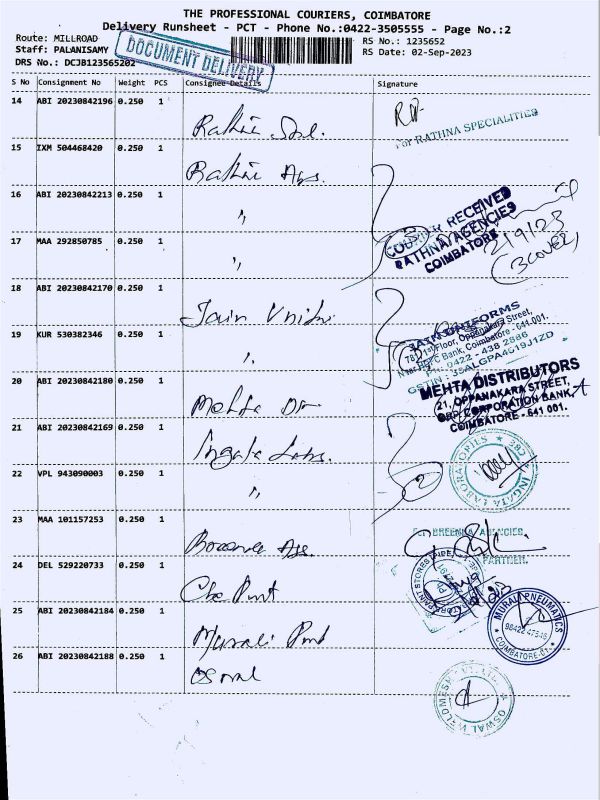 THE PROFESSIONAL COURIERS, COIMBATORE
Delivery Runsheet - PCT - Phone No.:0422-3505555 - Page No.:2
Route: MILLROAD
RS No.: 1235652
Staff: PALANISAMY
RS Date: 02-Sep-2023
DRS No.: DCJB123565202
DOCUMENT DELIVERY
S No Consignment No Weight PCS Consignee Details Signature
14 ABI 20230842196 0.250 1
For RATHNA SPECIALITIES
15 IXM 504468420 0.250 1
16 ABI 20230842213 0.250 1 〃
COURIER RECEIVED
RATHNA AGENCIES
COIMBATORE
2/9/23
(3 COVER)
17 MAA 292850785 0.250 1 〃
18 ABI 20230842170 0.250 1 Jain
JAIN UNIFORMS
787, 1st Floor, Oppanakara Street,
Near HDFC Bank, Coimbatore - 641 001.
0422 - 438 2886
19 KUR 530382346 0.250 1 〃
20 ABI 20230842180 0.250 1 Mehta
MEHTA DISTRIBUTORS
21, OPPANAKARA STREET,
CORPORATION BANK,
COIMBATORE - 641 001.
21 ABI 20230842169 0.250 1
INGATA LABORATORIES
22 VPL 943090003 0.250 1 〃
23 MAA 101157253 0.250 1
For BREENKA AGENCIES
PARTNER.
24 DEL 529220733 0.250 1
25 ABI 20230842184 0.250 1 Murali
MURALI PNEUMATICS
COIMBATORE
26 ABI 20230842188 0.250 1 Oswal
OSWAL